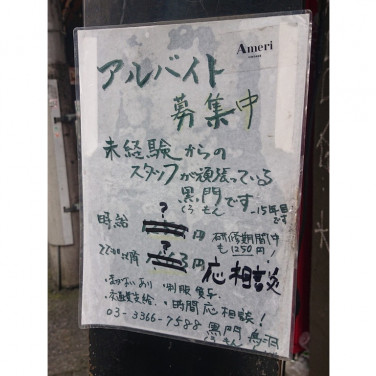 Ameri
アルバイト
募集中
未経験からの
スタッフが頑張っている
黒門です
くろ もん
15年目
です
時給 ? 円 研修期間中
も1250円!
22時以降 ? 円 応相談
・まかないあり ・制服貸与
・交通費支給 ・時間応相談!
03-3366-7588 黒門
くろ もん